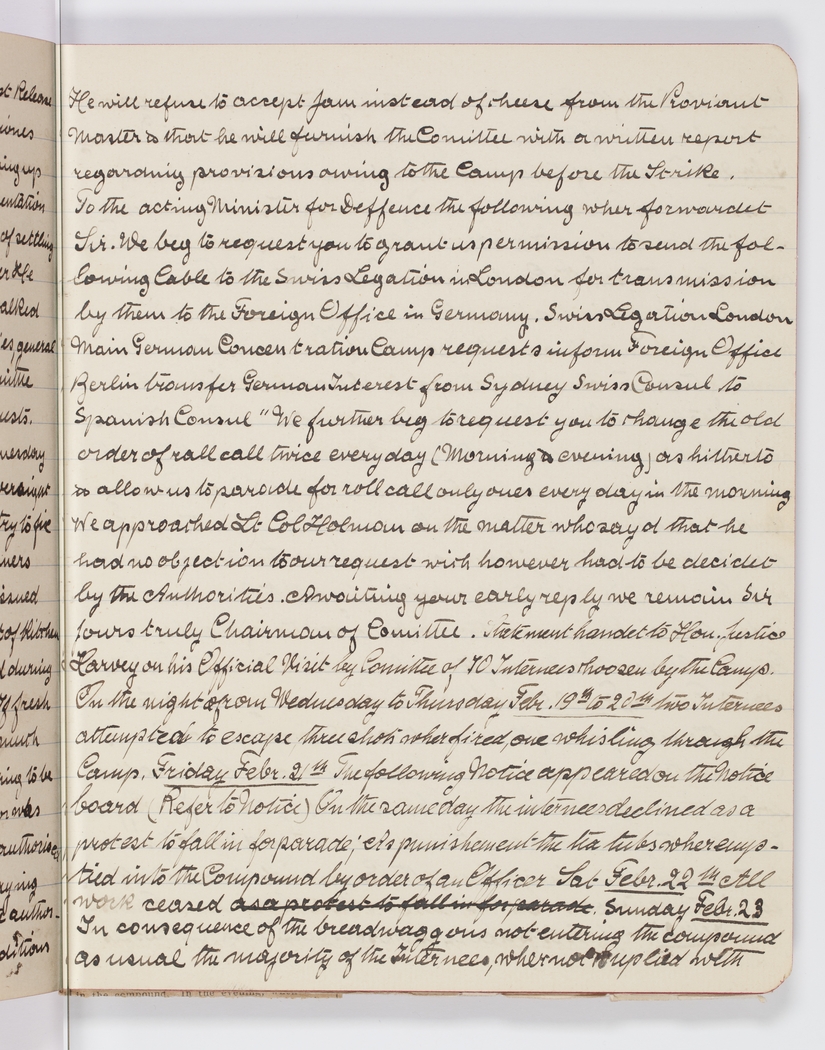 st Release
iones
ing up
entation
of settling
er He
alked
es general
mittee
usts.
nesday
versight
try to fix
ners
issued
t of Kitchen
d during
If fresh
much
ing to be
on was
authorises
rying
d author-
ditions
He will refuse to accept Jam instead of cheese from the Proviant
Master & that he will furnish the Comittee with a written report
regarding provisions owing to the Camp before the Strike.
To the acting Minister for Deffence the following wher forwardet
Sir. We beg to request you to grant us permission to send the fol-
lowing Cable to the Swiss Legation in London for transmission
by them to the Foreign Office in Germany. Swiss Legation London
Main German Concentration Camp requests inform Foreign Office
Berlin transfer German Interest from Sydney Swiss Consul to
Spanish Consul " We further beg to request you to change the old
order of rall call twice every day (Morning & evening) as hitherto
& allow us to parade for roll call only ones every day in the morning
We approached Lt Col Holman on the matter who sayd that he
had no objection to our request wich however had to be decidet
by the Authorities. Awaiting your early reply we remain Sir
yours truly Chairman of Comittee. Statement handet to Hon. Justice
Harvey on his Official Visit by Comittee of 10 Internees choosen by the Camp.
On the night from Wednesday to Thursday Febr. 19th to 20th two Internees
attempted to escape three shots wher fired, one whisling through the
Camp. Friday Febr. 21th The following Notice appeared on the Notice
board (Refer to Notice) On the same day the internees declined as a
protest to fall in for parade; As punishement the tea tubs where emp-
tied into the Compound by order of an Officer Sat Febr. 22th All
work ceased as a protest to fall in for parade. Sunday Febr. 23
In consequence of the breadwaggons not entering the compound
as usual the majority of the Internees, wher not suplied with
in the compound. In the evening